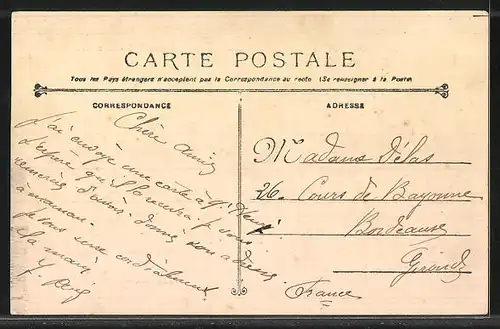 CARTE POSTALE
Tous les Pays étrangers n'acceptent pas la Correspondance au recto (Se renseigner à la Poste)
CORRESPONDANCE
Chère amie
J'ai envoyé une carte à Mr Henri
J'espère qu'il la recevra je vous
remercie d'avoir donné son adresse
à maman.
Je vous serre cordialement
la main
ADRESSE
Madame Délas
26 Cours de Bayonne
Bordeaux
Gironde
France